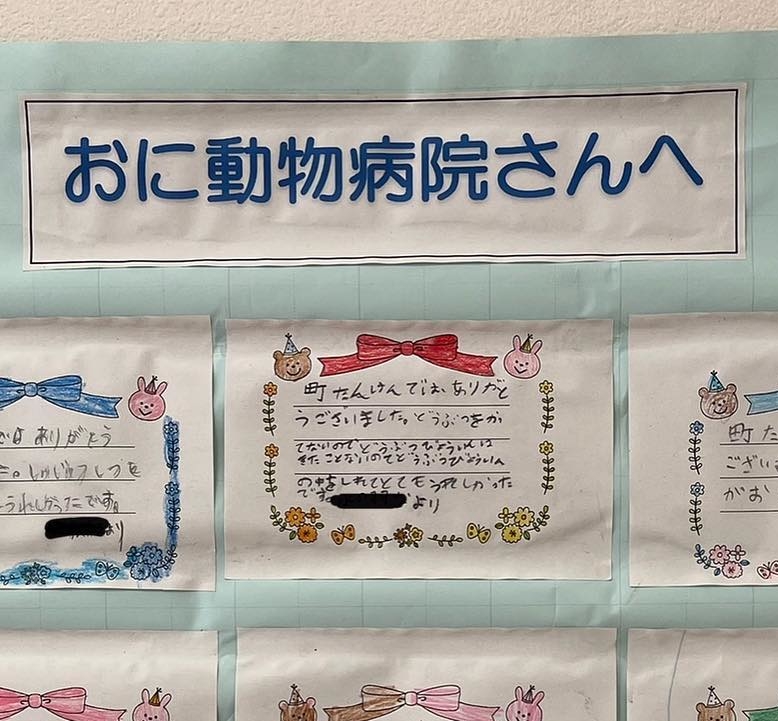 おに動物病院さんへ
ではありがとう
た。しゅじゅつしつを
うれしかったです。
より
町たんけんでは、ありがと
うございました。どうぶつをか
てないのでどうぶつびょういんは
きたことないのでどうぶつびょういん
の中をしれてとてもうれしかった
です。
より
町た
ござい
がお